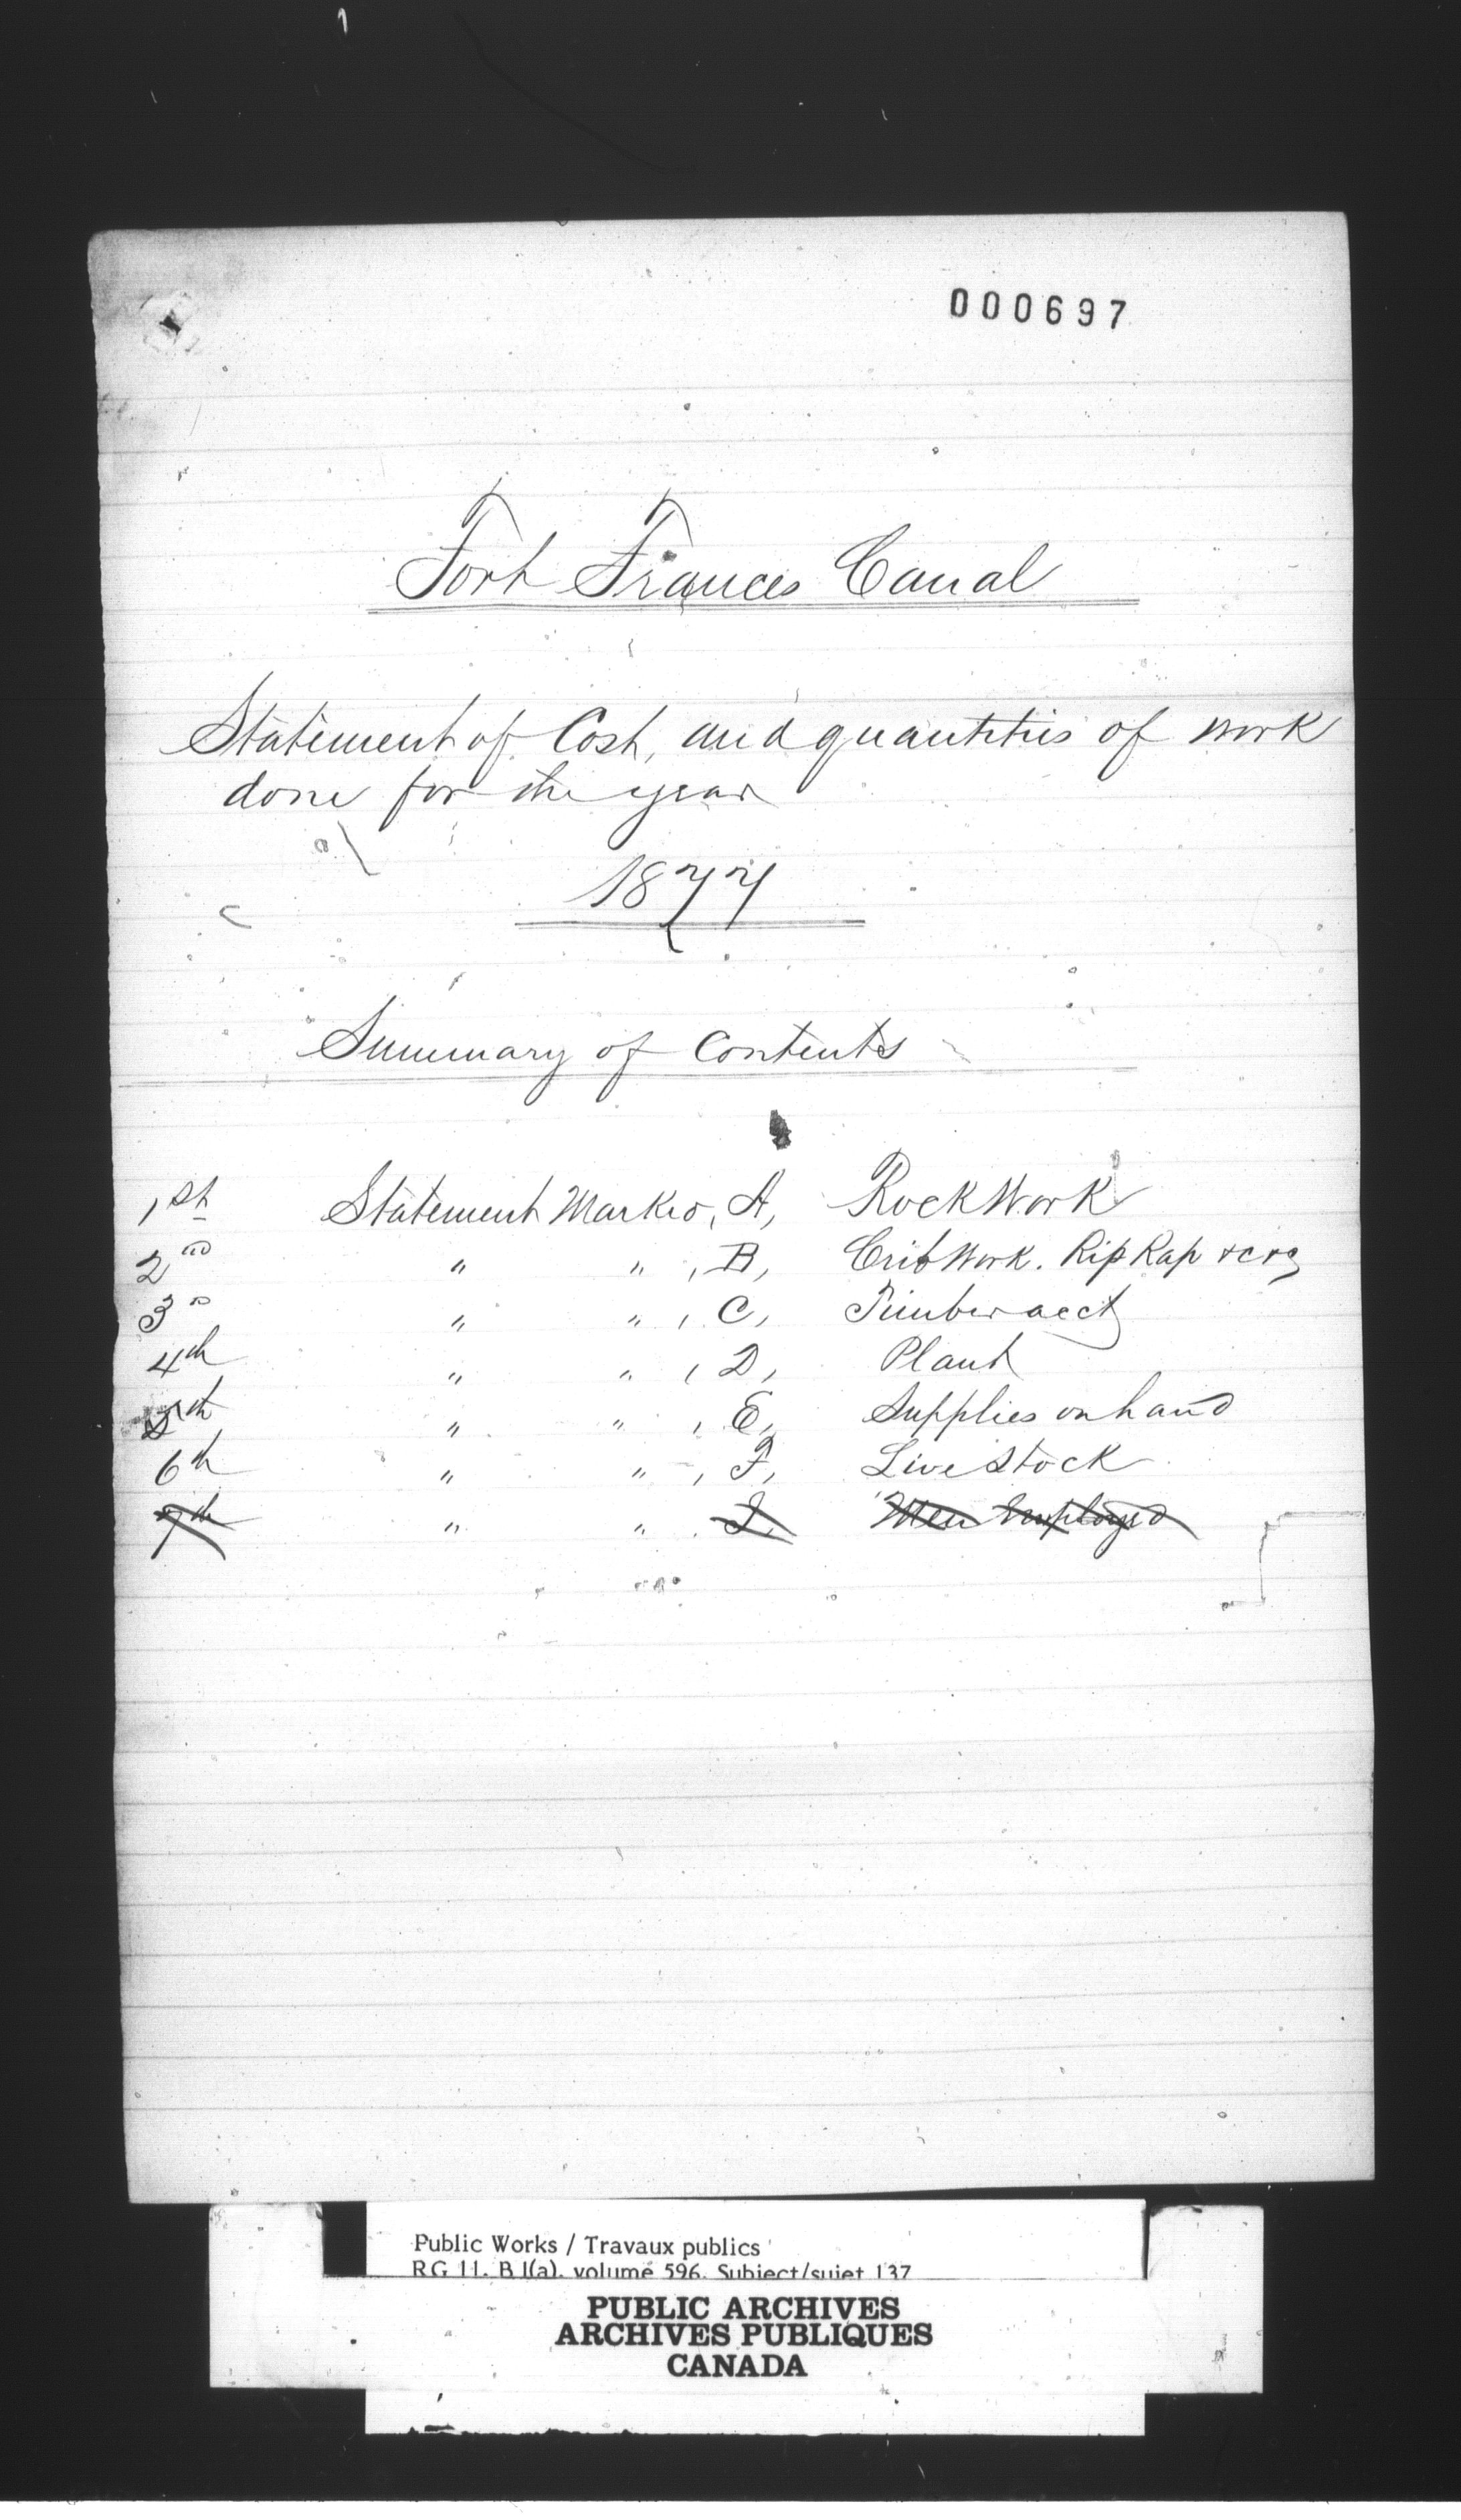 000697
Fort Frances Canal
Statement of Cost, and quantities of work
done for the year
1877
Summary of Contents
1st Statement Marked, A, Rock Work
2nd " " , B, Crib Work. Rip Rap &c &c
3d " " , C, Timber acct
4th " " , D, Plant
5th " " , E, Supplies on hand
6th " " , F, Live Stock
7th " " Men Employed
Public Works / Travaux publics
RG 11, B 1(a), volume 596, Subject/sujet 137
PUBLIC ARCHIVES
ARCHIVES PUBLIQUES
CANADA